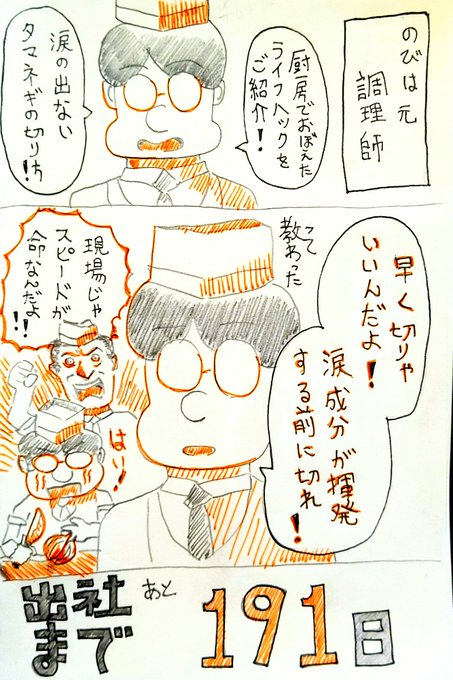 のびは元
調理師
厨房でおぼえた
ライフハックを
ご紹介!
涙の出ない
タマネギの切り方!
早く切りゃ
いいんだよ!
涙成分が揮発
する前に切れ!
って
教わった
現場じゃ
スピードが
命なんだよ!!
はい!
出社
まで
あと
191日